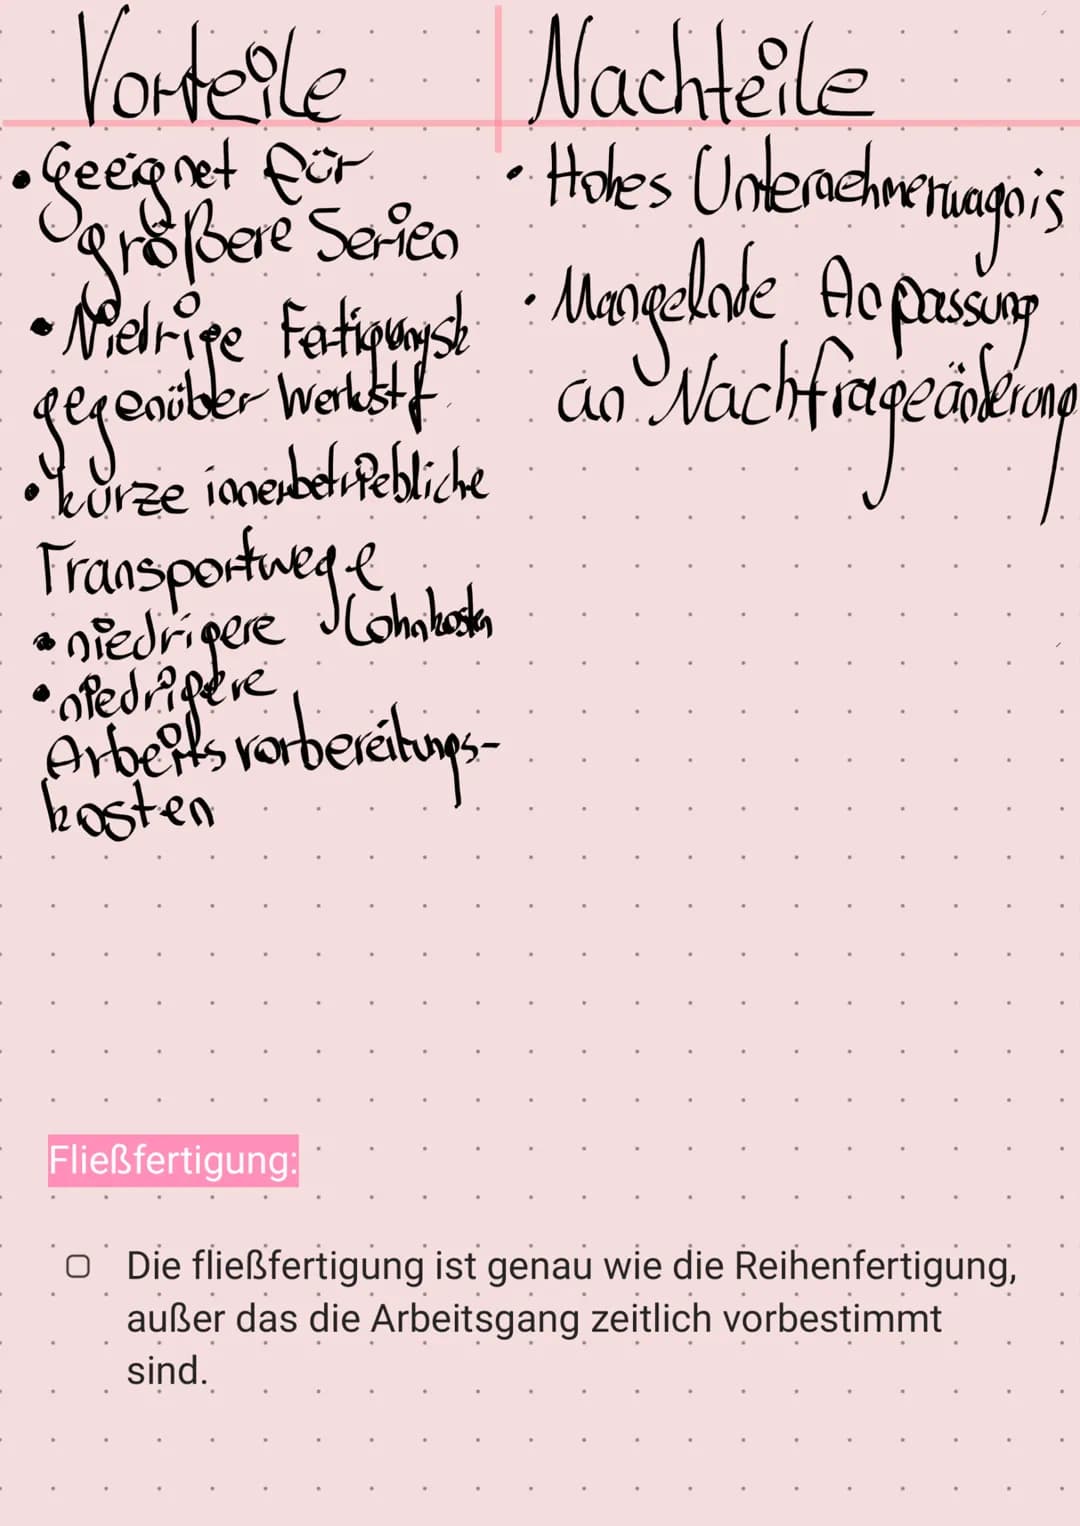 Vorteile
• Geeignet für
größere Serien
• Niedrige Fetigungsk
gegenüber Werkstf.
• kurze innerbetriebliche
Transportwege
• niedrigere Lohnkosten
• niedrigere
Arbeitsvorbereitungs-
kosten
Nachteile
• Hohes Unternehmerwagnis
• Mangelnde Anpassung
an Nachfrageänderung
Fließfertigung:
Die fließfertigung ist genau wie die Reihenfertigung,
außer das die Arbeitsgang zeitlich vorbestimmt
sind.